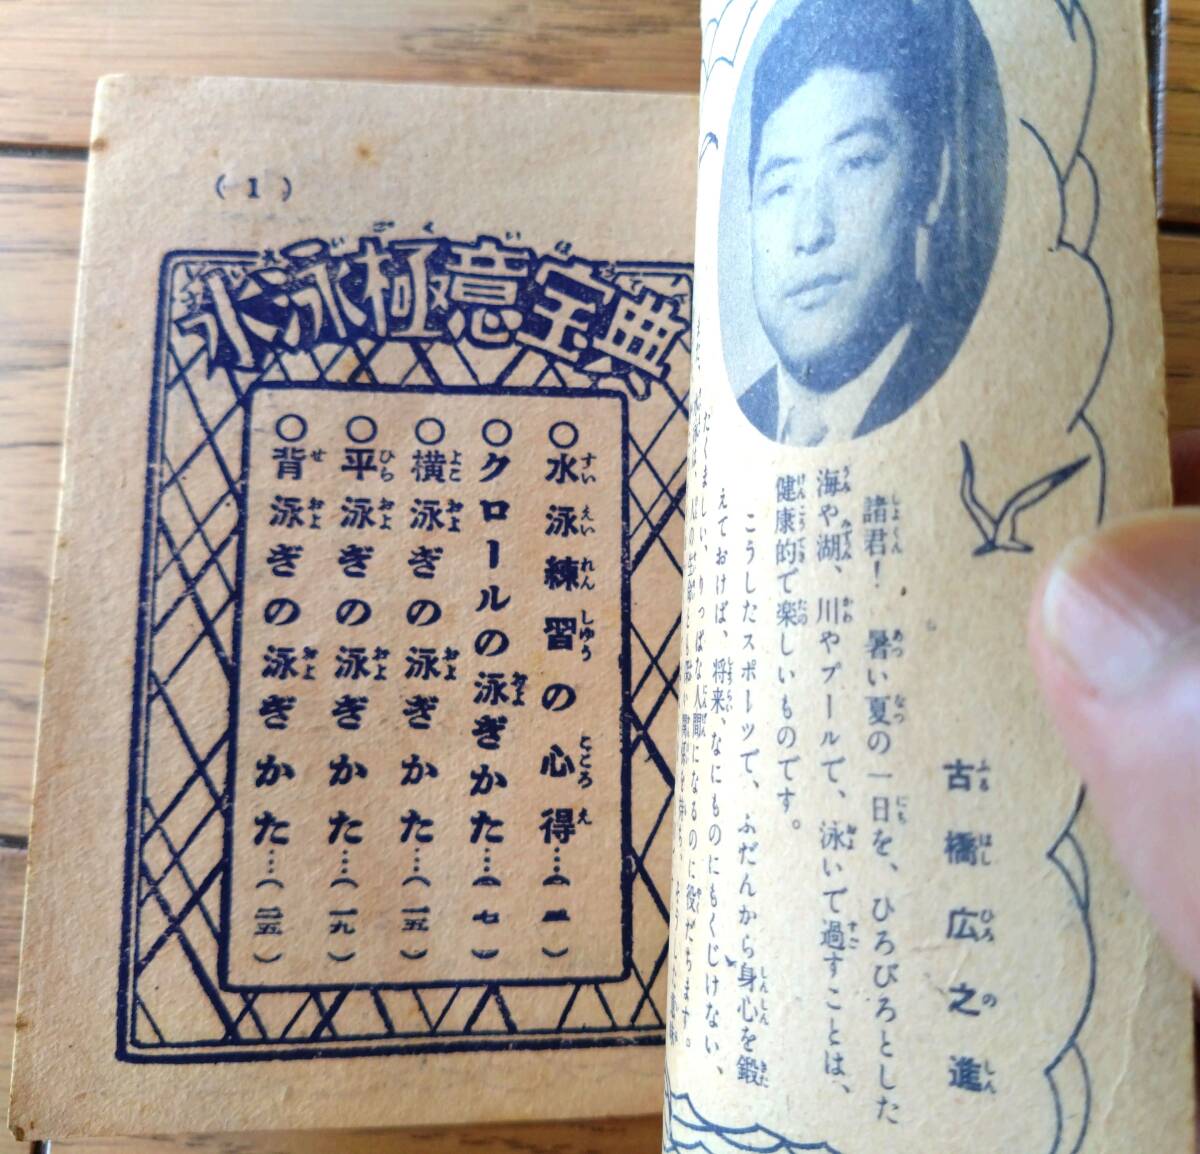 古橋広之進
諸君! 暑い夏の一日を、ひろびろとした
海や湖、川やプールで、泳いで過すことは、
健康的で楽しいものです。
こうしたスポーツで、ふだんから身心を鍛
えておけば、将来、なにものにもくじけない、
たくましい、りっぱな人間になるのに役だちます。
(1)
水泳極意宝典
○水泳練習の心得…(二)
○クロールの泳ぎかた…(七)
○横泳ぎの泳ぎかた…(一五)
○平泳ぎの泳ぎかた…(一九)
○背泳ぎの泳ぎかた…(二五)